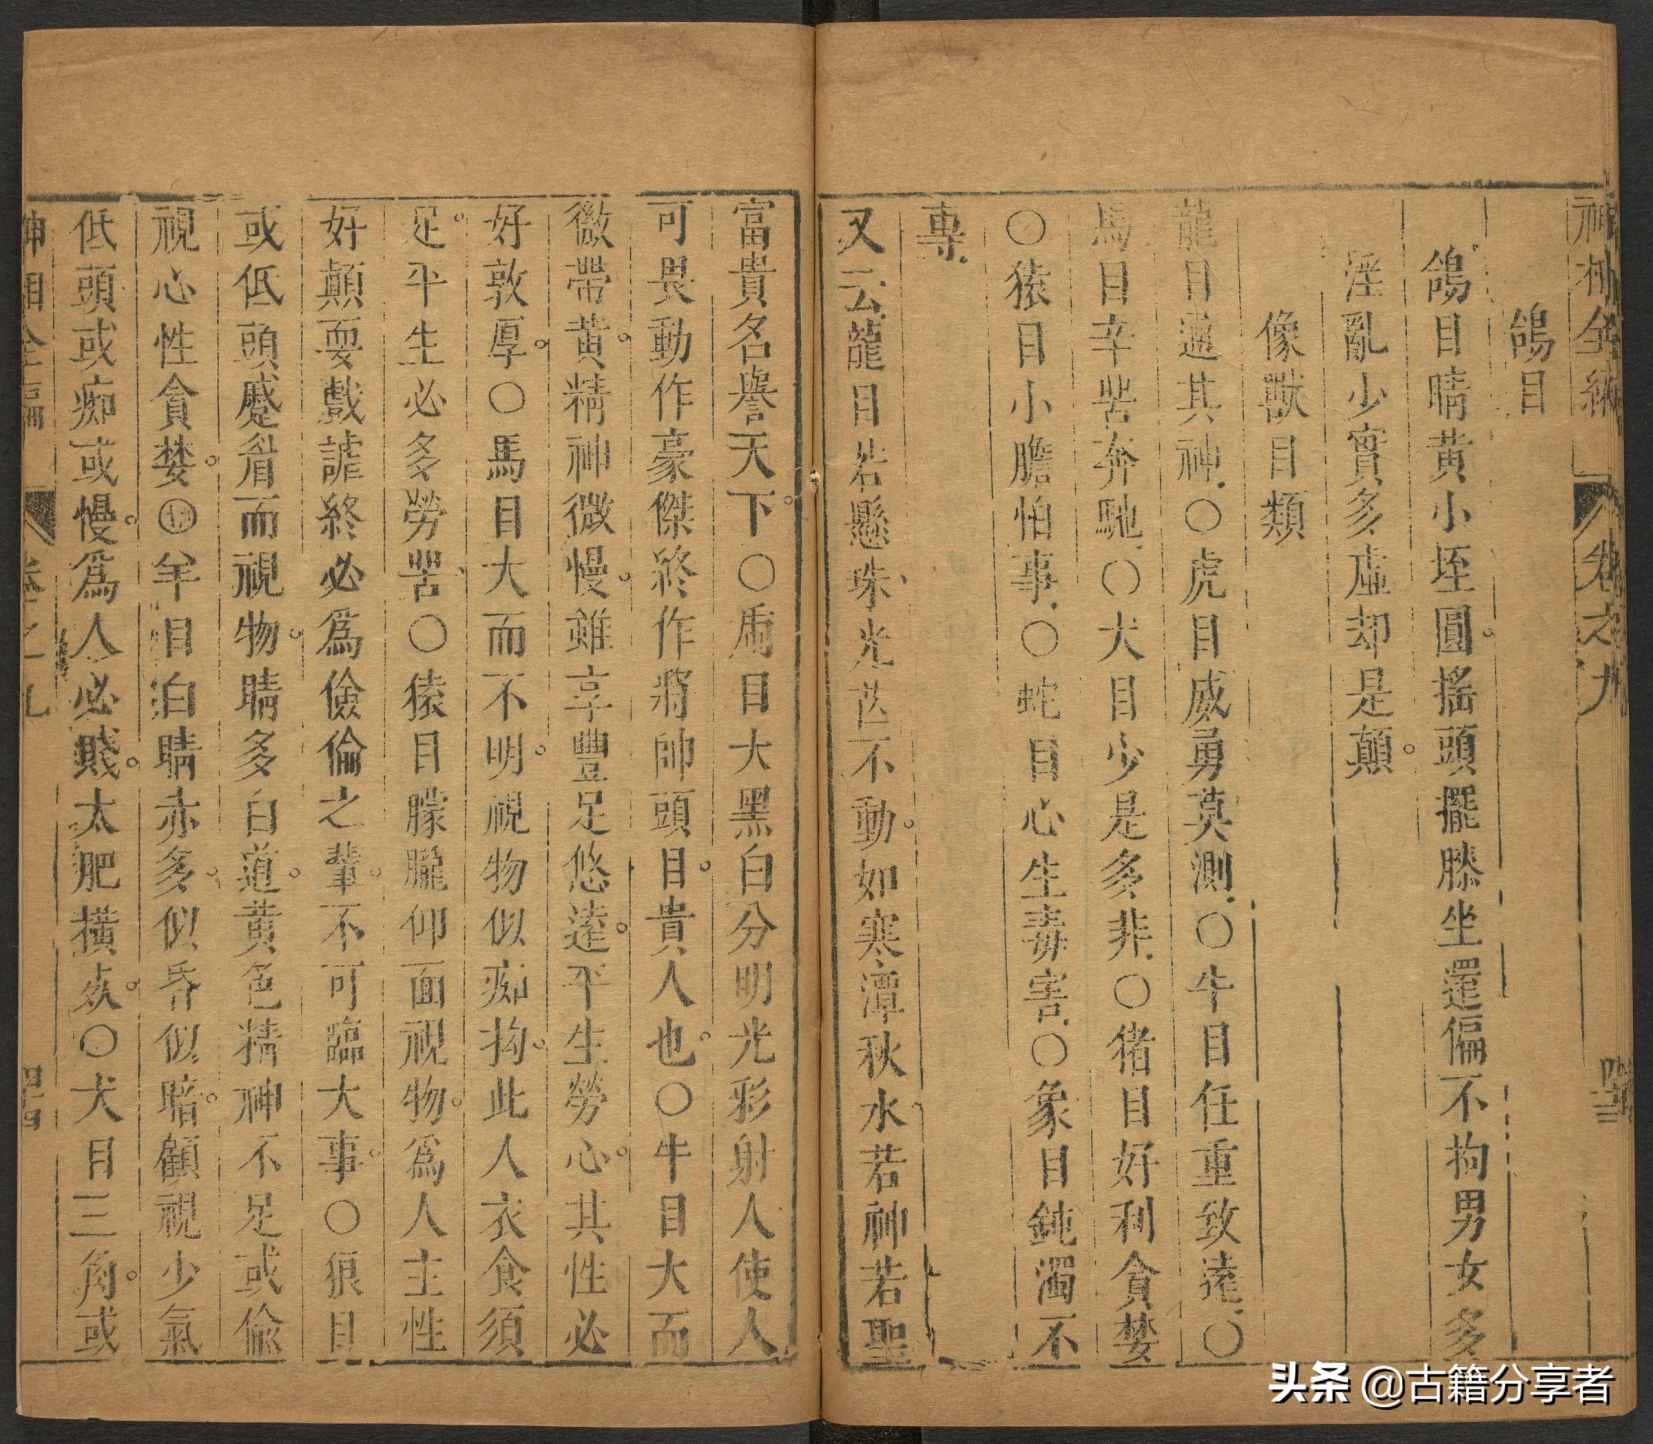 神相全編 卷之九
鴿目
鴿目睛黃小垤圓。搖頭擺膝坐還偏不拘男女多
淫亂少實多虛却是顛。
像獸目類
龍目遁其神○虎目威勇莫測○牛目任重致遠○
馬目辛苦奔馳○犬目少是多非○猪目好利貪婪
○猿目小膽怕事○蛇目心生毒害○象目鈍濁不
專
又云龍目若懸珠光芒不動。如寒潭秋水若神若聖
富貴名譽天下。○虎目大黑白分明光彩射人使人
可畏動作豪傑終作將帥頭目。貴人也。○牛目大而
微帶黃。精神微慢。雖享豐足悠遠。平生勞心。其性必
好敦厚。○馬目大而不明。視物似痴拘。此人衣食須
足。平生必多勞苦○猿目朦朧仰面視物。爲人主性
好顛耍戲謔終必爲儉倫之輩。不可臨大事。○狼目
或低頭蹙眉而視物。睛多白道。黃色精神不足或偷
視心性貪婪。羊目白睛赤多。似昏似暗。顧視少氣
低頭或痴或慢。爲人必賤。太肥橫死。○犬目三角。或
神相全編 卷之九 四十四
頭条 @古籍分享者